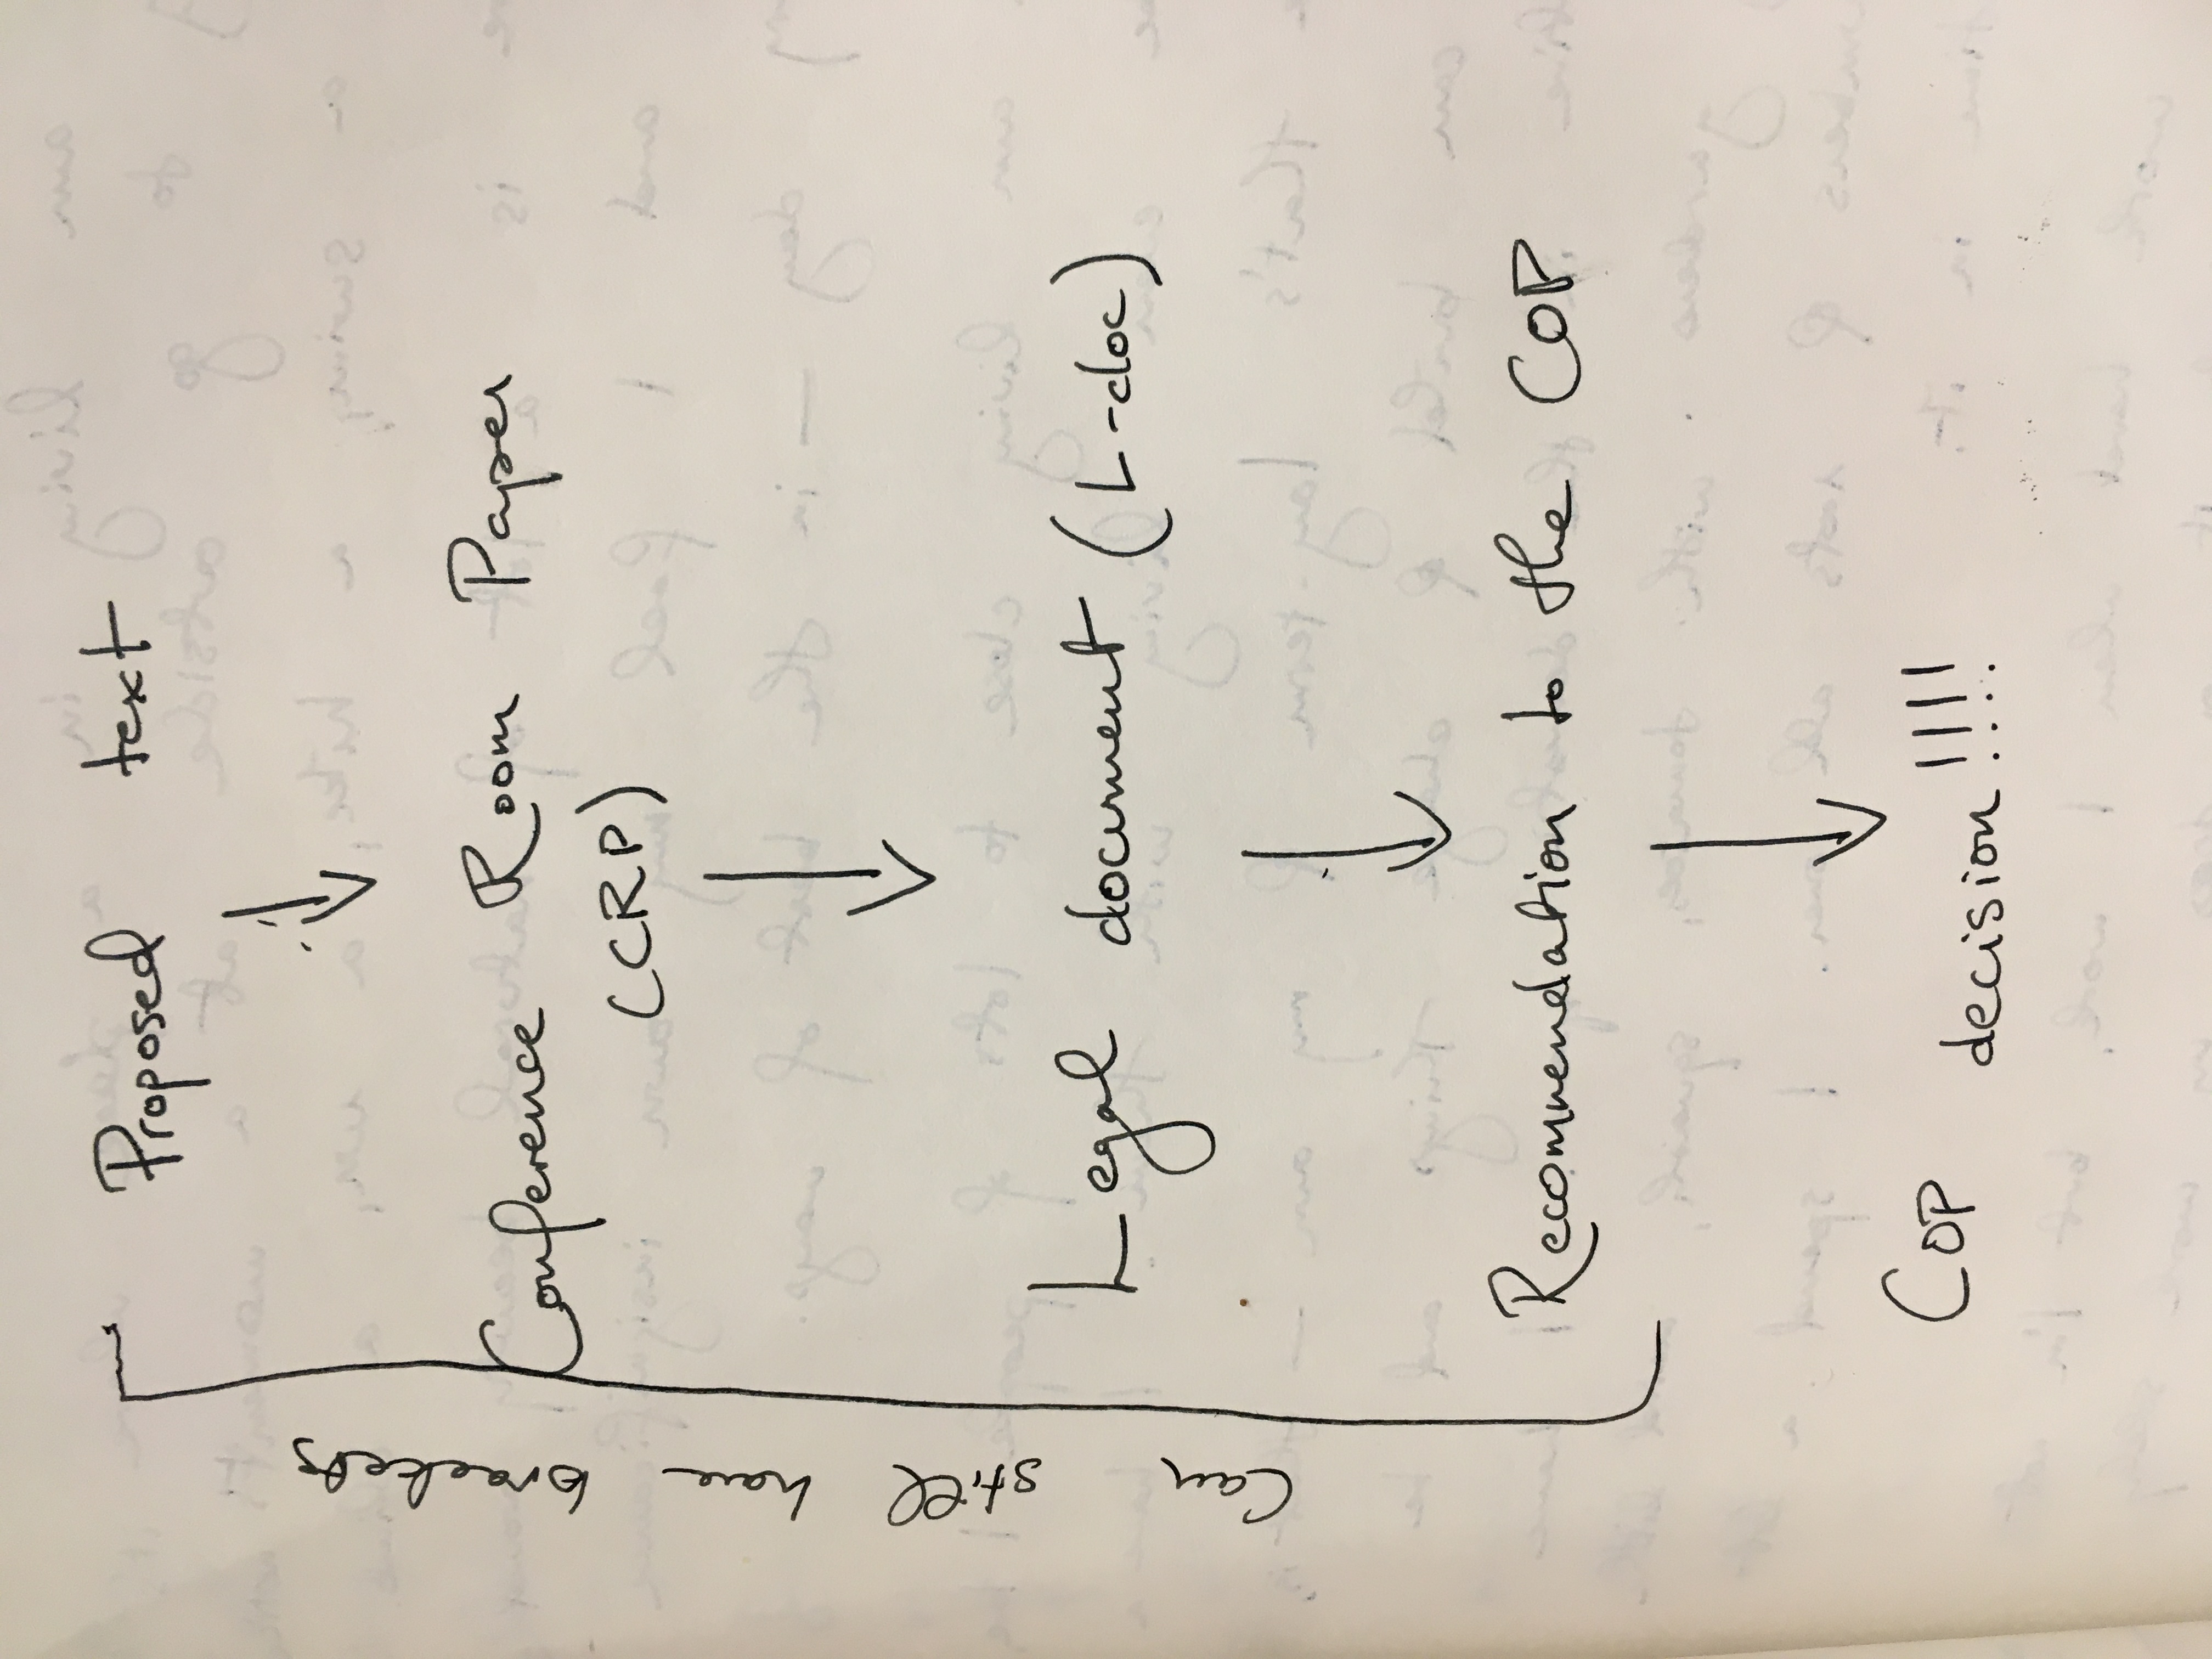 Proposed text
Conference Room Paper
(CRP)
Legal document (L-doc)
Recommendation to the COP
COP decision !!!!
Can still have brackets